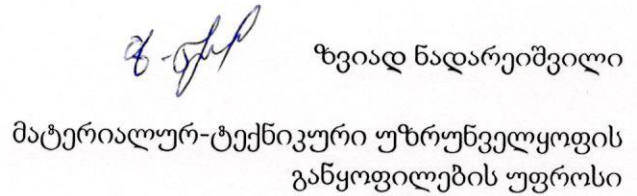 ზვიად ნადარეიშვილი
მატერიალურ-ტექნიკური უზრუნველყოფის
განყოფილების უფროსი